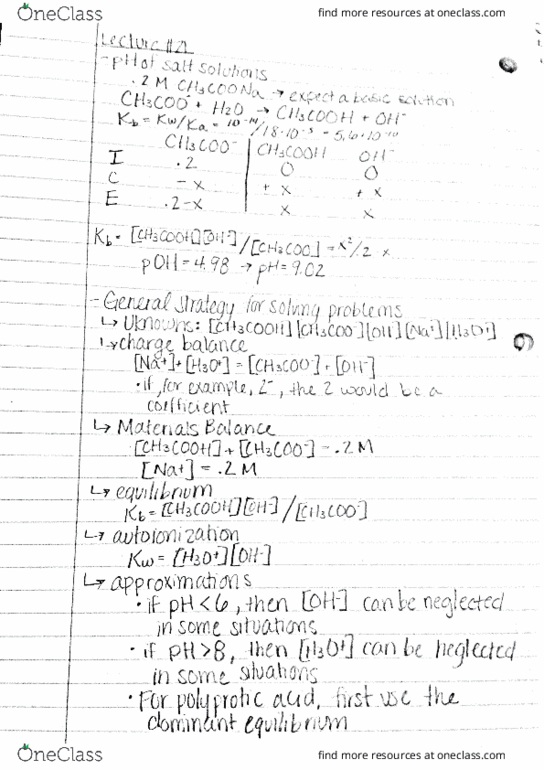 OneClass
find more resources at oneclass.com
Lecture #21
- pH of salt solutions
.2 M CH3COONa → expect a basic solution
CH3COO⁻ + H2O → CH3COOH + OH⁻
Kb = Kw/Ka = 10⁻¹⁴/1.8·10⁻⁵ = 5.6·10⁻¹⁰
CH3COO⁻ CH3COOH OH⁻
I .2 0 0
C -x +x +x
E .2-x x x
Kb = [CH3COOH][OH⁻]/[CH3COO⁻] = x²/.2-x
pOH = 4.98 → pH = 9.02
- General strategy for solving problems
↳ Uknowns: [CH3COOH][CH3COO⁻][OH⁻][Na⁺][H3O⁺]
↳ charge balance
[Na⁺]+[H3O⁺] = [CH3COO⁻]+[OH⁻]
· if, for example, 2⁻, the 2 would be a
coefficient
↳ Materials Balance
[CH3COOH] + [CH3COO⁻] = .2 M
[Na⁺] = .2 M
↳ equilibrium
Kb = [CH3COOH][OH⁻]/[CH3COO⁻]
↳ autoionization
Kw = [H3O⁺][OH⁻]
↳ approximations
· if pH < 6, then [OH⁻] can be neglected
in some situations
· if pH > 8, then [H3O⁺] can be neglected
in some situations
· For polyprotic acid, first use the
dominant equilibrium
OneClass
find more resources at oneclass.com